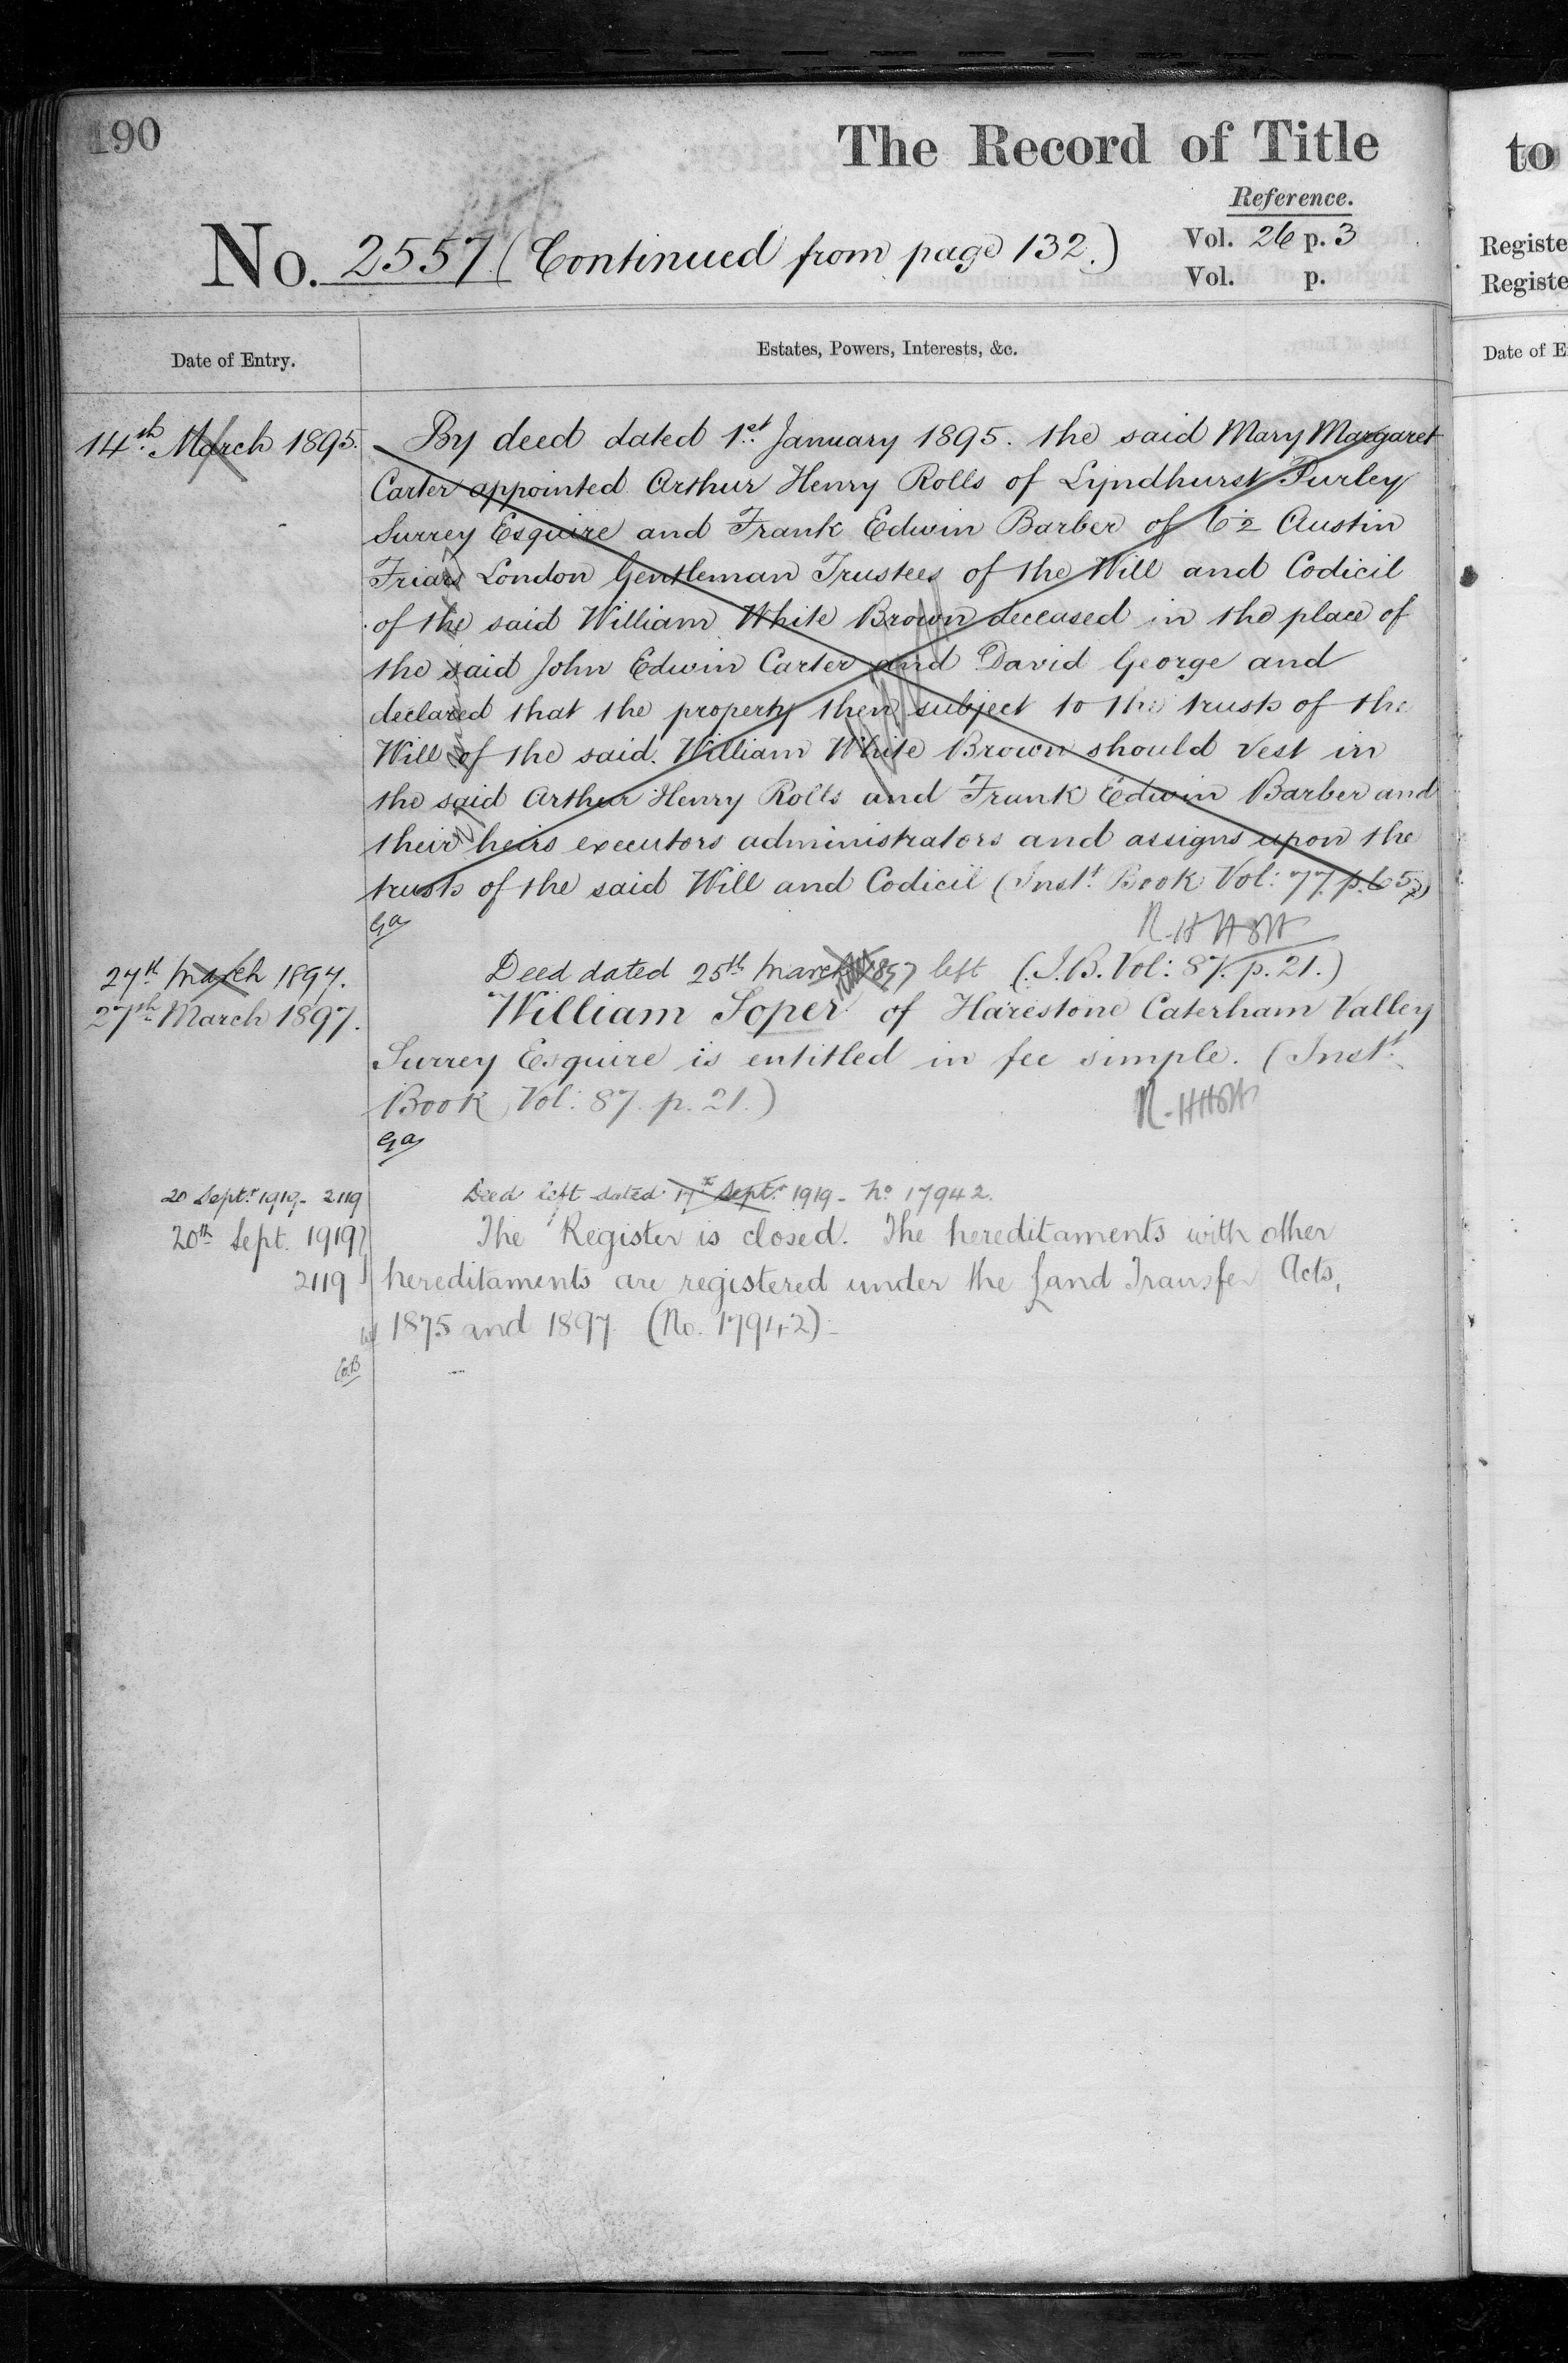 190
The Record of Title
Reference.
No. 2557 (Continued from page 132.)
Vol. 26 p. 3
Vol. p.
Date of Entry.
Estates, Powers, Interests, &c.
14th March 1895.
By deed dated 1st January 1895. the said Mary Margaret
Carter appointed Arthur Henry Rolls of Lyndhurst Purley
Surrey Esquire and Frank Edwin Barber of 62 Austin
Friars London Gentleman Trustees of the Will and Codicil
of the said William White Brown deceased in the place of
the said John Edwin Carter and David George and
declared that the property then subject to the trusts of the
Will of the said William White Brown should vest in
the said Arthur Henry Rolls and Frank Edwin Barber and
their heirs executors administrators and assigns upon the
trusts of the said Will and Codicil (Instt. Book Vol: 77. p. 657)
Ga
27th March 1897.
Deed dated 25th March 1897 left (I.B. Vol: 87. p. 21.)
27th March 1897.
William Soper of Harestone Caterham Valley
Surrey Esquire is entitled in fee simple. (Instt.
Book Vol: 87. p. 21.)
Ga
20 Septr 1919 - 2119
Deed left dated 17th Septr 1919 - No 17942.
20th Sept. 1919
2119
The Register is closed. The hereditaments with other
hereditaments are registered under the Land Transfer Acts,
1875 and 1897 (No. 17942) -
to
Registe
Registe
Date of E